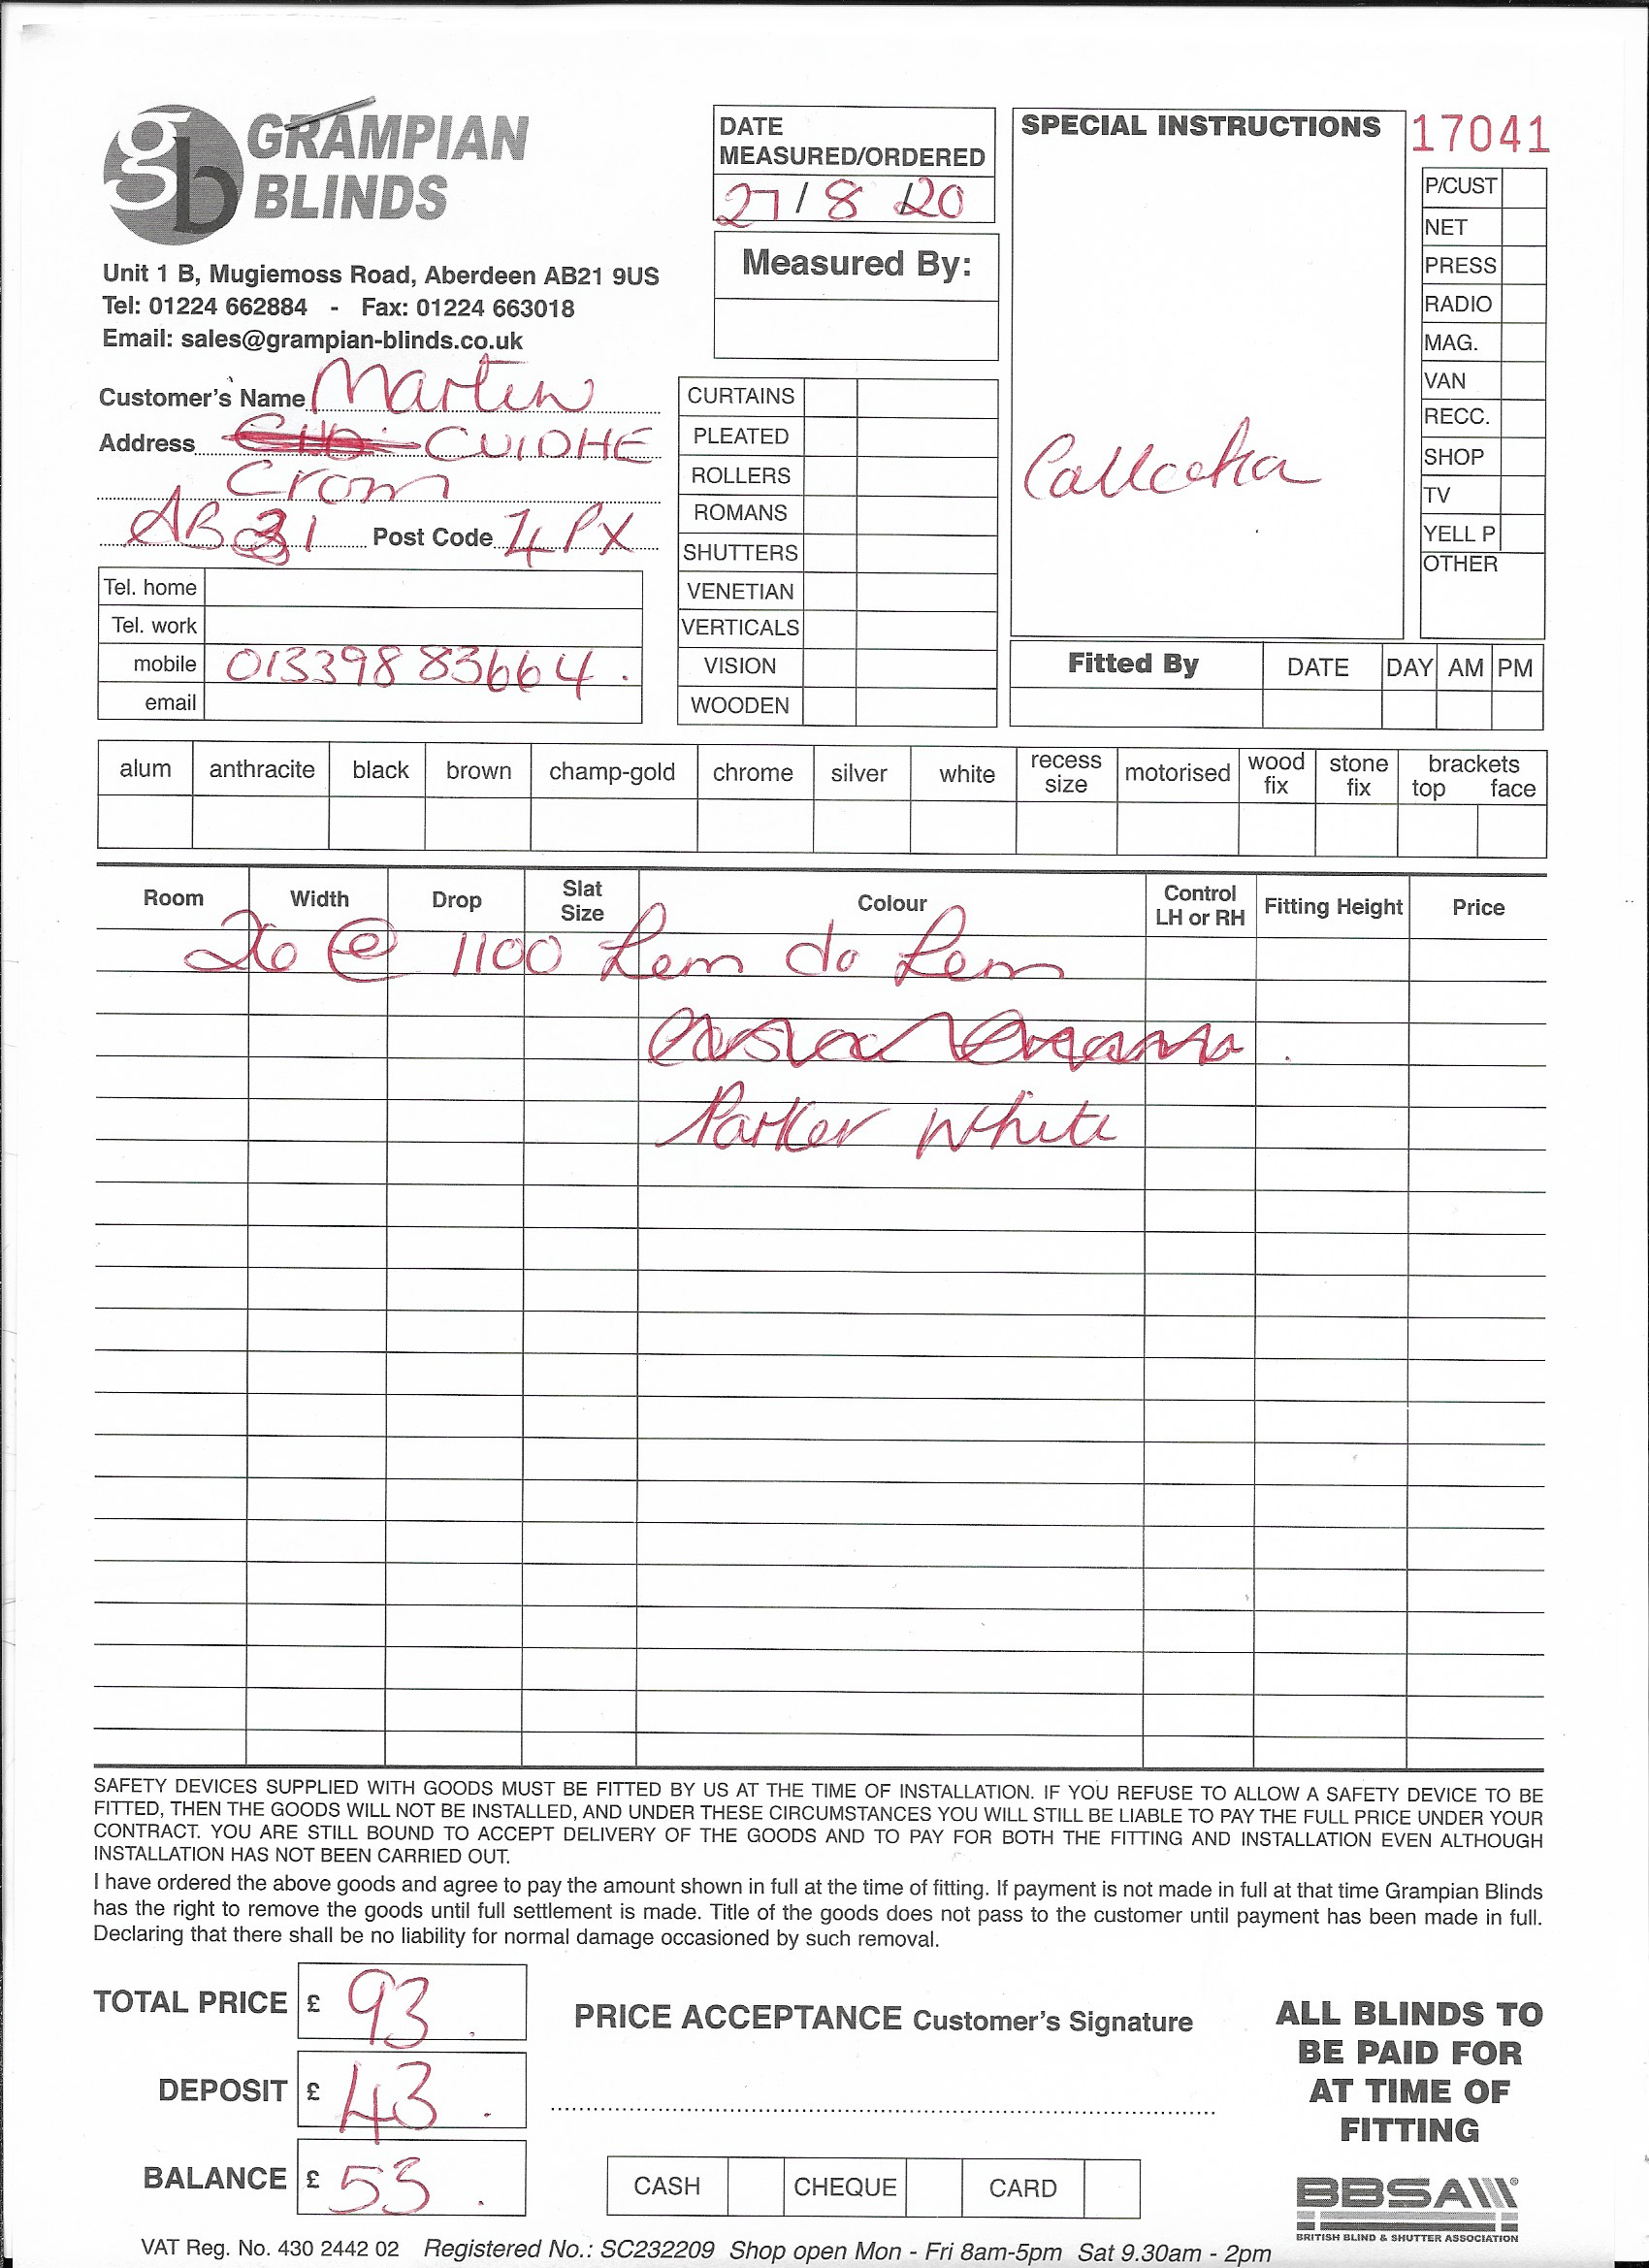 gb GRAMPIAN
BLINDS
Unit 1 B, Mugiemoss Road, Aberdeen AB21 9US
Tel: 01224 662884 - Fax: 01224 663018
Email: sales@grampian-blinds.co.uk
DATE
MEASURED/ORDERED
27/8/20
Measured By:
SPECIAL INSTRUCTIONS
17041
P/CUST
NET
PRESS
RADIO
MAG.
VAN
RECC.
SHOP
TV
YELL P
OTHER
Customer's Name Martin
Address CUIDHE
Crom
AB31 Post Code 4PX
Tel. home
Tel. work
mobile 013398 83664.
email
CURTAINS
PLEATED
ROLLERS
ROMANS
SHUTTERS
VENETIAN
VERTICALS
VISION
WOODEN
Fitted By DATE DAY AM PM
alum anthracite black brown champ-gold chrome silver white recess size motorised wood fix stone fix brackets top face
Room Width Drop Slat Size Colour Control LH or RH Fitting Height Price
26 @ 1100 Hem do Hem
Parker White
SAFETY DEVICES SUPPLIED WITH GOODS MUST BE FITTED BY US AT THE TIME OF INSTALLATION. IF YOU REFUSE TO ALLOW A SAFETY DEVICE TO BE
FITTED, THEN THE GOODS WILL NOT BE INSTALLED, AND UNDER THESE CIRCUMSTANCES YOU WILL STILL BE LIABLE TO PAY THE FULL PRICE UNDER YOUR
CONTRACT. YOU ARE STILL BOUND TO ACCEPT DELIVERY OF THE GOODS AND TO PAY FOR BOTH THE FITTING AND INSTALLATION EVEN ALTHOUGH
INSTALLATION HAS NOT BEEN CARRIED OUT.
I have ordered the above goods and agree to pay the amount shown in full at the time of fitting. If payment is not made in full at that time Grampian Blinds
has the right to remove the goods until full settlement is made. Title of the goods does not pass to the customer until payment has been made in full.
Declaring that there shall be no liability for normal damage occasioned by such removal.
TOTAL PRICE £ 93.
DEPOSIT £ 43.
BALANCE £ 53.
PRICE ACCEPTANCE Customer's Signature
CASH CHEQUE CARD
ALL BLINDS TO
BE PAID FOR
AT TIME OF
FITTING
BBSA
BRITISH BLIND & SHUTTER ASSOCIATION
VAT Reg. No. 430 2442 02 Registered No.: SC232209 Shop open Mon - Fri 8am-5pm Sat 9.30am - 2pm